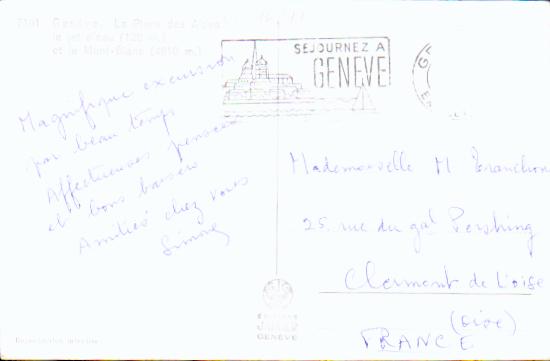 7101 Genève. La Place des Alpes
le jet d'eau (120 m.)
et le Mont-Blanc (4810 m.)
SÉJOURNEZ A
GENEVE
Magnifique excursion
par beau temps
Affectueuses pensées
et bons baisers
Amitiés chez vous
Simone
Mademoiselle M Tranchon
25 rue du gal Pershing
Clermont de l'oise
(oise)
FRANCE
EDITIONS
JAEGER
GENÈVE
Reproduction interdite